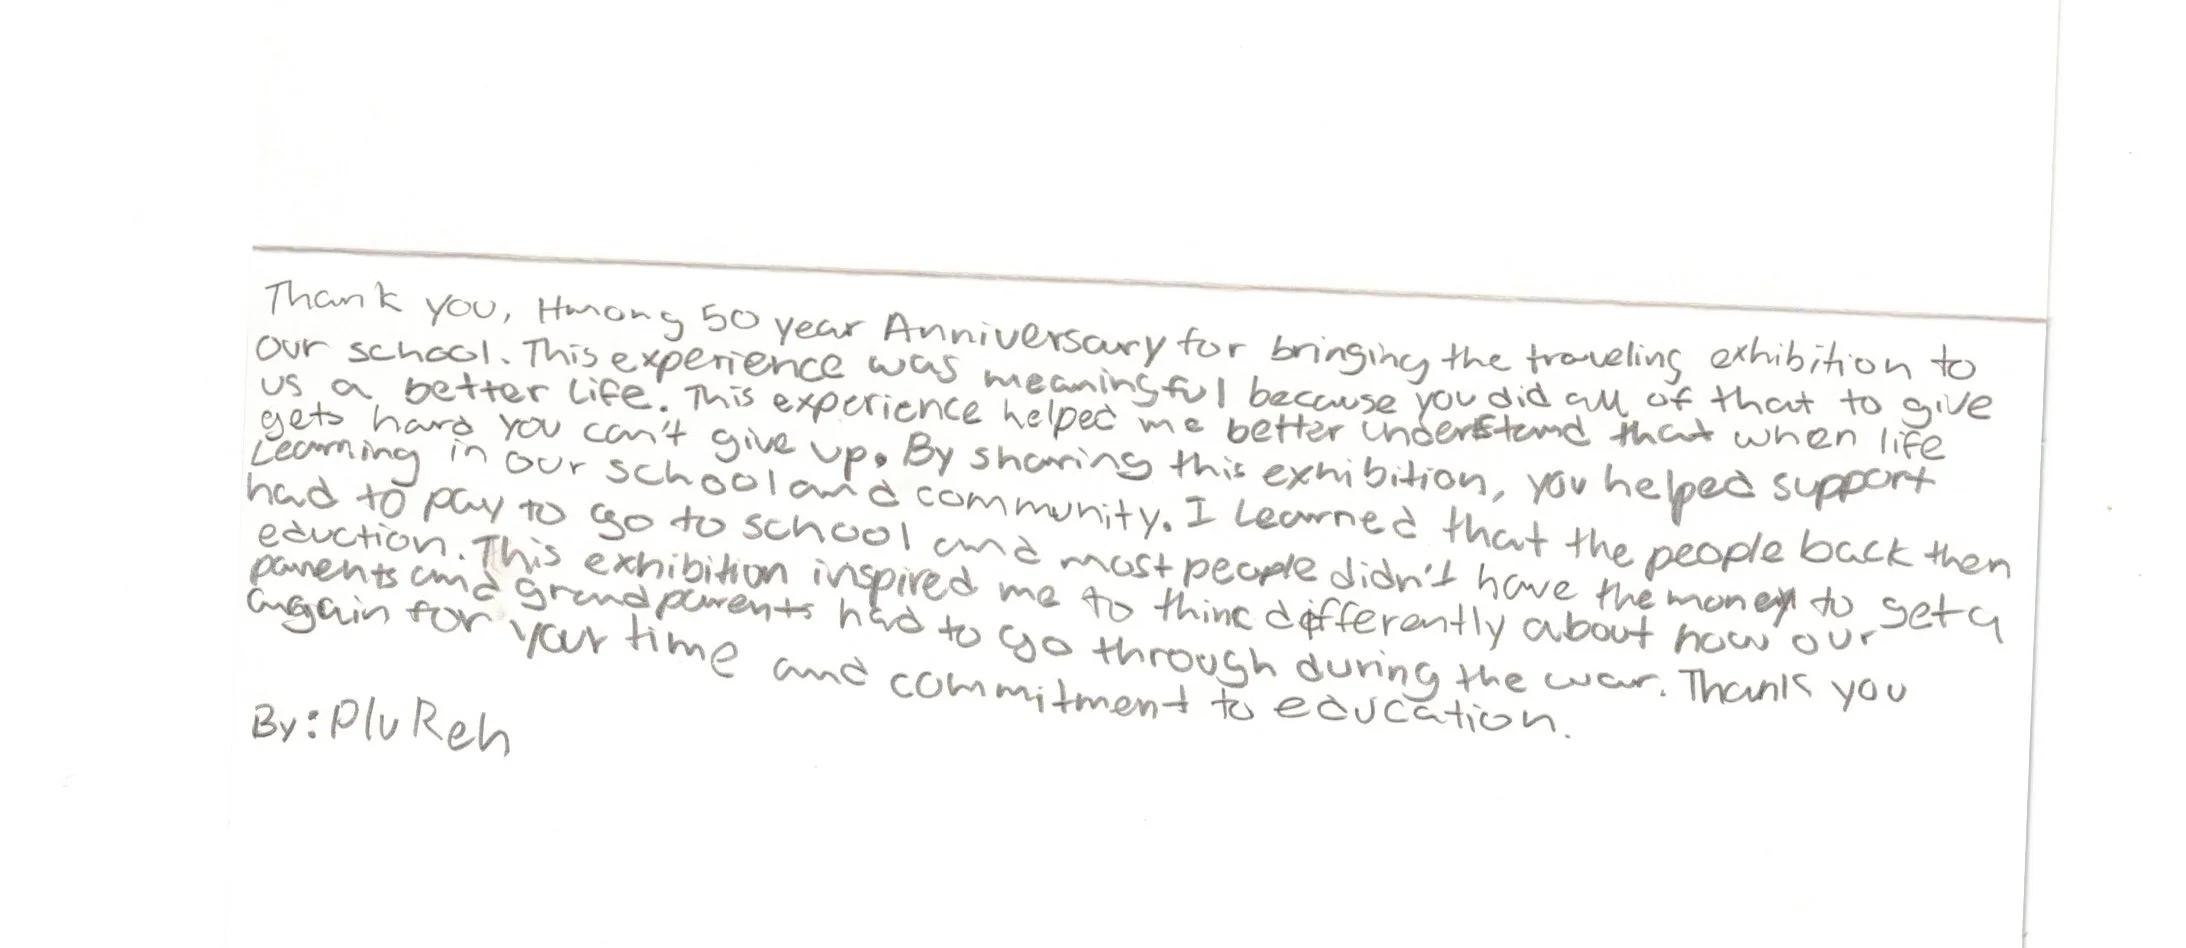 Thank you, Hmong 50 year Anniversary for bringing the traveling exhibition to
our school. This experience was meaningful because you did all of that to give
us a better life. This experience helped me better understand that when life
gets hard you can't give up. By sharing this exhibition, you helped support
Learning in our school and community. I Learned that the people back then
had to pay to go to school and most people didn't have the money to get a
eduction. This exhibition inspired me to thinc differently about how our
parents and grandparents had to go through during the war. Thank you
again for your time and commitment to education.
By: Plu Reh